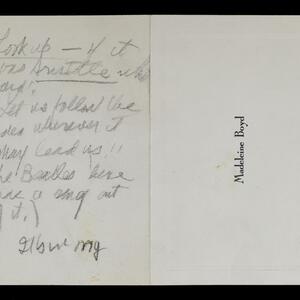 Look up — if it
was Aristotle who
said:
Let us follow the
idea wherever it
may lead us!!
The Beatles have
made a song out
of it.)
Madeleine Boyd